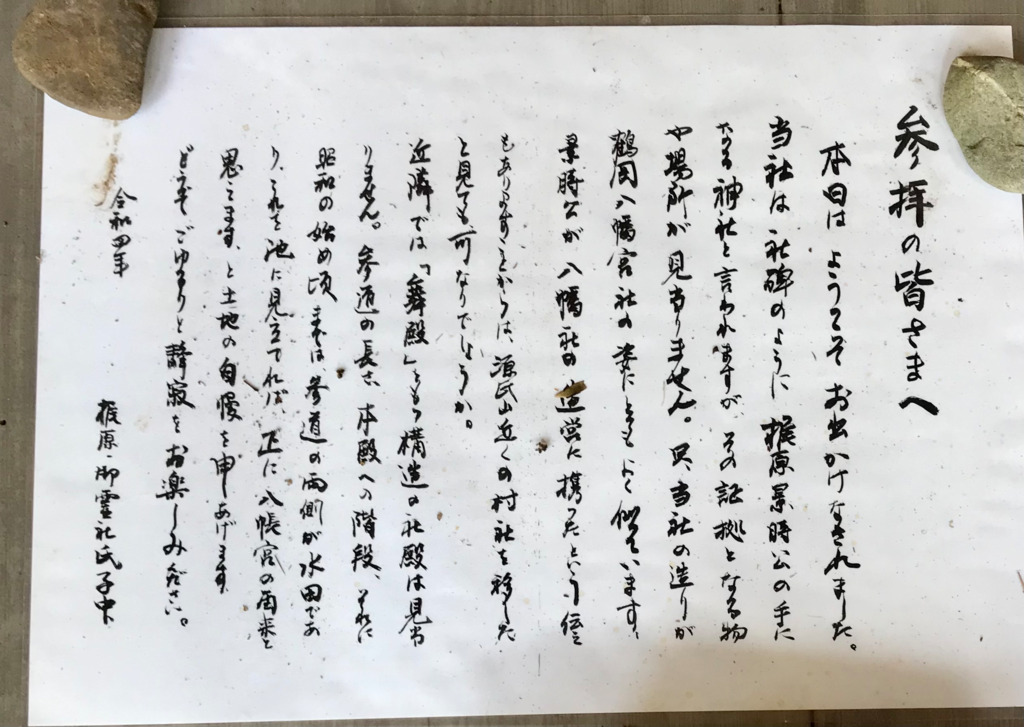 参拝の皆さまへ
本日は ようこそ お出かけなされました。
当社は 社碑のように 梶原景時公の手に
なる神社と言われますが、その証拠となる物
や場所が見当りません。只、当社の造りが
鶴岡八幡宮社の姿にとてもよく似ています。
景時公が 八幡社の造営に携ったという伝え
もありますことからは、源氏山近くの村社を移した
と見ても、可なりでしょうか。
近隣では「舞殿」をもつ構造の社殿は見当
りません。参道の長さ、本殿への階段、それに
昭和の始め頃までは、参道の両側が水田であ
り、これを池に見立てれば、正に八幡宮の
思えます、と土地の自慢を申しあげます。
どうぞ ごゆるりと静寂をお楽しみ下さい。
令和四年
梶原御霊社氏子中